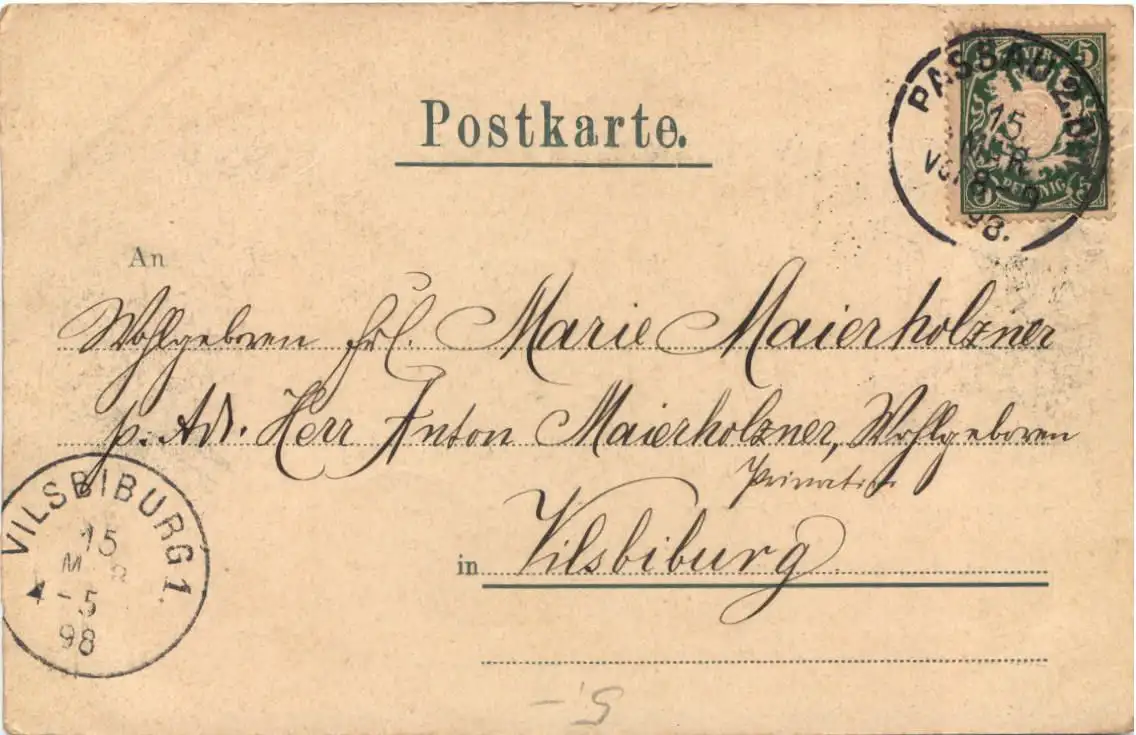 Postkarte.
5
BAYERN
PFENNIG
5 5
PASSAU 2. B.
15
MÄR.
Vor. 8-9
98.
An
Wohlgeboren Frl. Marie Maierholzner
p. Ad. Herr Anton Maierholzner, Wohlgeboren
Privatier
in Vilsbiburg
VILSBIBURG 1.
15
4-5
98
5,-